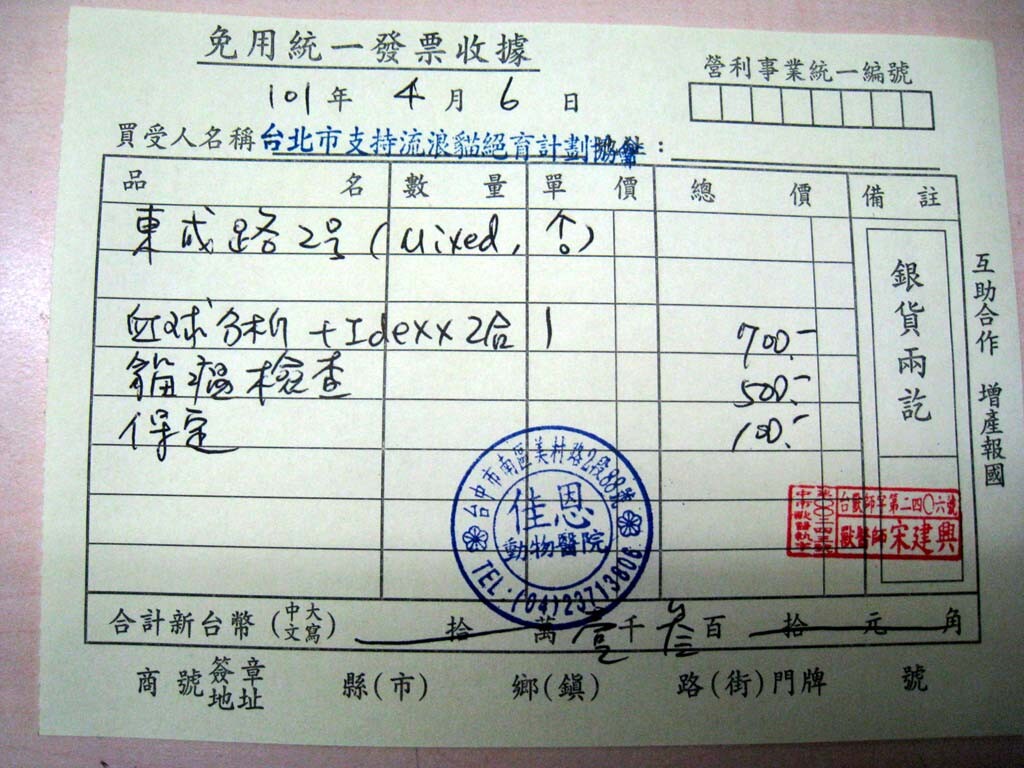 免用統一發票收據
營利事業統一編號
101年 4月 6日
買受人名稱 台北市支持流浪貓絕育計劃協會：
品名 數量 單價 總價 備註
東成路2号(Mixed, 合)
血球分析 + Idexx 2合 1 700.-
貓瘟檢查 500.-
保定 100.-
銀貨兩訖
互助合作 增產報國
台中市南區美村路2段88號
佳恩
動物醫院
TEL·(04)23713606
台獸師字第二四〇六號
獸醫師 宋建興
合計新台幣(中文大寫) 拾 萬 壹千 叁百 拾 元 角
商號簽章地址 縣(市) 鄉(鎮) 路(街)門牌 號